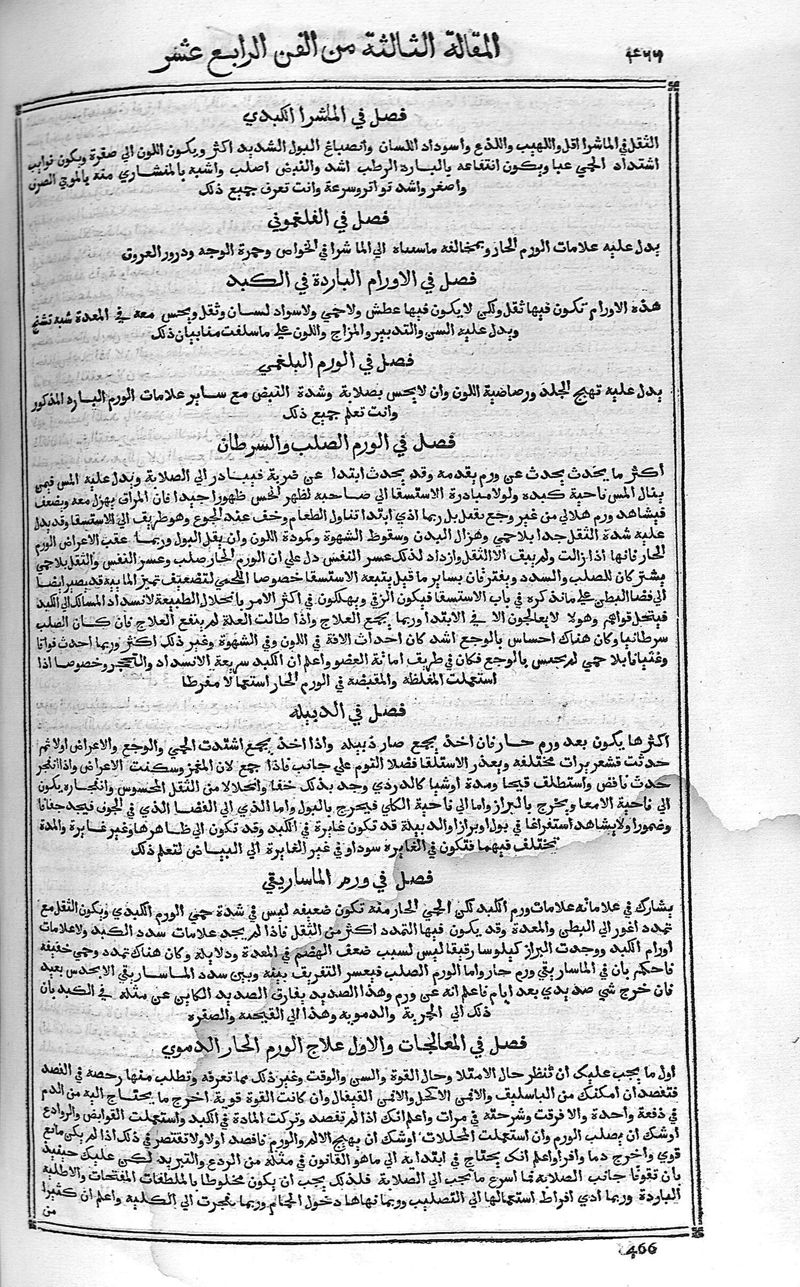 ٤٦٦ المقالة الثالثة من الفن الرابع عشر
فصل في الماشرا الكبدي
الثقل في الماشرا اقل واللهيب واللذع واسوداد اللسان وانصباغ البول الشديد اكثر ويكون اللون الى صفرة ويكون نوايب
اشتداد الحمي غبا ويكون انتفاعه بالبارد الرطب اشد والنبض اصلب واشبه بالمنشاري منه بالموجي الصرف
واصغر واشد تواتر وسرعة وانت تعرف جميع ذلك
فصل في الفلغموني
يدل عليه علامات الورم الحار وبمخالفه ماسبناه الي الماشرا في الخواص وحمرة الوجه ودرور العروق
فصل في الاورام الباردة في الكبد
هذه الاورام تكون فيها ثقل ولكن لا يكون فيها عطش ولاحمي ولاسواد لسان وثقل ويحس معه في المعدة شبه تشنج
ويدل عليه السن والتدبير والمزاج واللون علي ماسلفت منابيان ذلك
فصل في الورم البلغمي
يدل عليه تهيج الجلد ورصاصية اللون وان لايحس بصلابة وشدة النبض مع ساير علامات الورم البارد المذكور
وانت تعلم جميع ذلك
فصل في الورم الصلب والسرطان
اكثر ما يحدث يحدث عن ورم يقدمه وقد يحدث ابتدا عن ضربة فيبادر الي الصلابة ويدل عليه المس فيمن
ينال المس ناحية كبده ولولا مبادرة الاستسقا الي صاحبه لظهر للحس ظهورا جيدا فان المراق يهزل معه ويضعف
فيشاهد ورم هلالي من غير وجع يعقل بل ربما اذي ابتدا تناول الطعام وخف عند الجوع وهو طريف الي الاستسقا وقد يدل
عليه شدة الثقل جدا بلاحمي وهزال البدن وسقوط الشهوة وكمودة اللون وان يقل البول وربما عقب الاعراض الورم
الحار فانها اذا زالت ولم يبف الا الثقل وازداد لذلك عسر النفس دل علي ان الورم الحار صلب وعسر النفس والثقل بلاحمي
يشتركان للصلب والسدد ويفترقان بساير ما قيل يتبعه الاستسقا خصوصا اللحمي لتضعيف تميز المايية قد يصير ايضا
الي فضا البطن علي ماتذكره في باب الاستسقا فيكون الزقي ويهلكون في اكثر الامر بانحلال الطبيعة لانسداد المسالك الي الكبد
فيتحل قواهم وهولا لايعالجون الا في الابتدا وربما ينجع العلاج واذا طالت العلة لم ينفع العلاج فان كان الصلب
سرطانيا وكان هناك احساس بالوجع اشد كان احداث الافة في اللون وفي الشهوة وغير ذلك اكثر وربما احدث فواقا
وغثيانا بلا حمي لم يحس بالوجع فكان في طريف اماتة العضو واعلم ان الكبد سريعة الانسداد والتحجر وخصوصا اذا
استعملت المغلظة والمقبضة في الورم الحار استعمالا مفرطا
فصل في الدبيله
اكثرها يكون بعد ورم حار فان اخذ يجمع صار دبيله واذا اخذ يجمع اشتدت الحمي والوجع والاعراض اولا ثم
حدثت قشعريرات مختلفه ويعذر الاستلقا فضلا النوم علي جانب فاذا جمع لان المغمز وسكنت الاعراض واذا انفجر
حدث نافض واستطلف قيحا ومدة اوشيا كالدردي وجد بذلك خفا وانحلالا من الثقل المحسوس وانفجاره يكون
الي ناحية الامعا ويخرج بالبراز واما الي ناحية الكلي فيخرج بالبول واما الذي الي الفضا الذي في الجوف فيجد جفافا
وضمورا ولايشاهد استفراغا في بول او براز والدبيلة قد تكون غايرة في الكبد وقد تكون الي ظاهرها وغير غايرة والمدة
يختلف فيهما فتكون في الغايره سودا و في غير الغايرة الي البياض لتعلم ذلك
فصل في ورم الماساريقي
يشارك في علاماته علامات ورم الكبد لكن الحمي الحار منه تكون ضعيفه ليس في شدة حمي الورم الكبدي ويكون الثقل مع
تمدد اغور الي البطن والمعدة وقد يكون فيها التمدد اكثر من الثقل فاذا لم يجد علامات سدد الكبد ولاعلامات
اورام الكبد ووجدت البراز كيلوسا رقيقا ليس لسبب ضعف الهضم في المعدة ودلايله وكان هناك تمدد وحمي خفيفه
فاحكم بان في الماساريقي ورم حار واما الورم الصلب فيعسر التفريف بينه وبين سدد الماساريقي الابحدس بعيد
فان خرج شي صديدي بعد ايام فاعلم انه عن ورم وهذا الصديد يفارق الصديد الكاين عن مثله في الكبد بان
ذلك الي الحمرية والدموية وهذا الي القيحيه والصفره
فصل في المعالجات والاول علاج الورم الحار الدموي
اول ما يجب عليك ان تنظر حال الامتلا وحال القوة والسن والوقت وغير ذلك مما تعرفه وتطلب منها رخصه في الفصد
فتفصد ان امكنك من الباسليف والافمن الاكحل والافمن القيفال وان كانت القوة قوية اخرج ما يحتاج اليه من الدم
في دفعة واحدة والا فرقت وشرحته في مرات واعلم انك اذا لم تفصد وتركت المادة في الكبد واستعملت القوابض والروادع
اوشك ان يصلب الورم وان استعملت المحللات اوشك ان يهيج الالم والورم فافصد اولا ولاتقتصر في ذلك اذا لم يكن مانع
قوي واخرج دما وافرا واعلم انك يحتاج في ابتدايه الي ماهو القانون في مثله من الردع والتبريد لكن عليك حينيذ
بان تقونا جانب الصلابه فما اسرع مايجب الي الصلابة فلذلك يجب ان يكون مخلوطا بالملطفات المفتحات والاطليه
الباردة وربما ادي افراط استعمالها الي التصليب ووبما نهاها دخول الحمام وربما تفجرت الي الكليه واعلم ان كثيرا
من
466